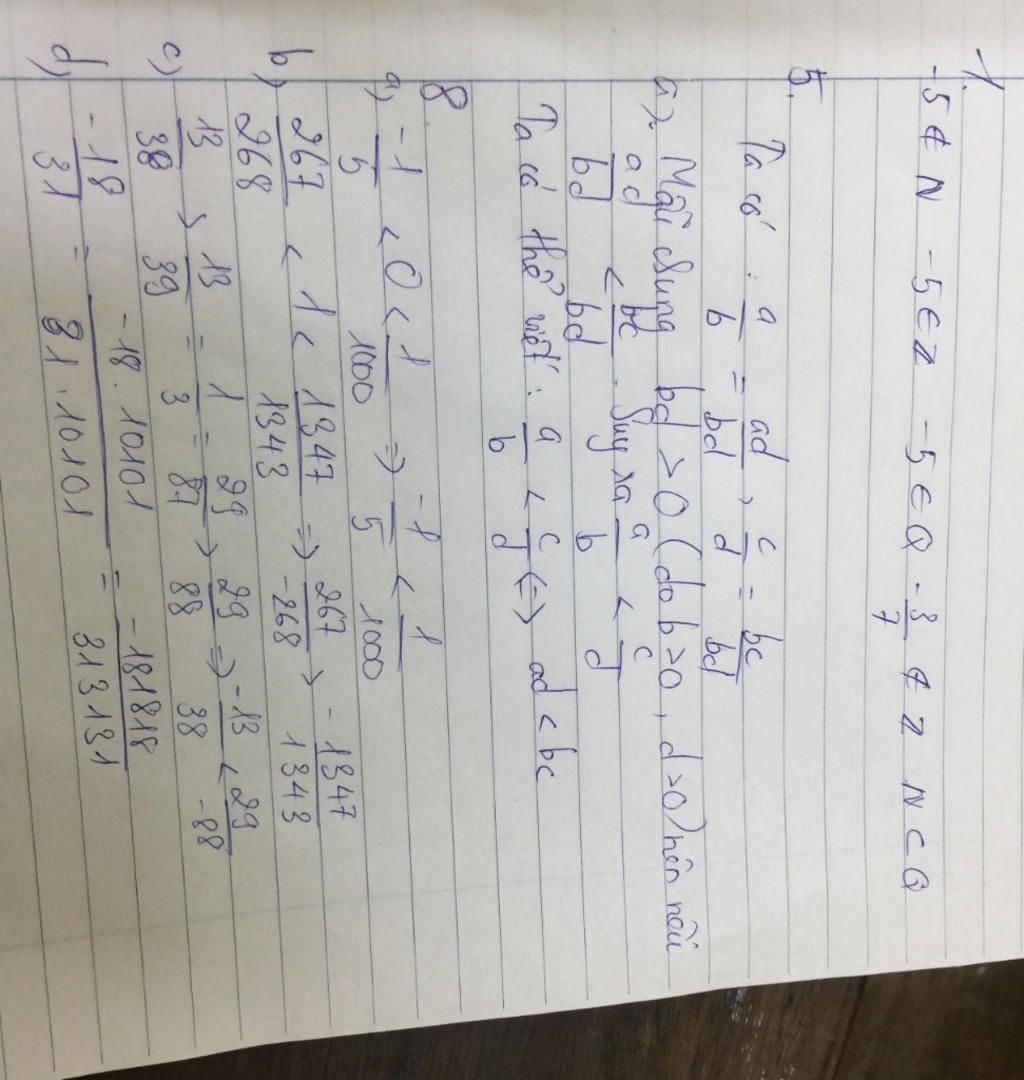 1.
-5 ∉ N -5 ∈ Z -5 ∈ Q -3/7 ∉ Z N ⊂ Q
5.
Ta có : a/b = ad/bd , c/d = bc/bd
a). Mẫu chung bd > 0 (do b > 0, d > 0) nên nếu
ad/bd < bc/bd . Suy ra a/b < c/d
Ta có thể viết : a/b < c/d <=> ad < bc
8
a) -1/5 < 0 < 1/1000 => -1/5 < 1/1000
b) 267/268 < 1 < 1347/1343 => 267/-268 > -1347/1343
c) 13/38 > 13/39 = 1/3 = 29/87 > 29/88 => -13/38 < 29/-88
d) -18/31 = -18.10101/31.10101 = -181818/313131